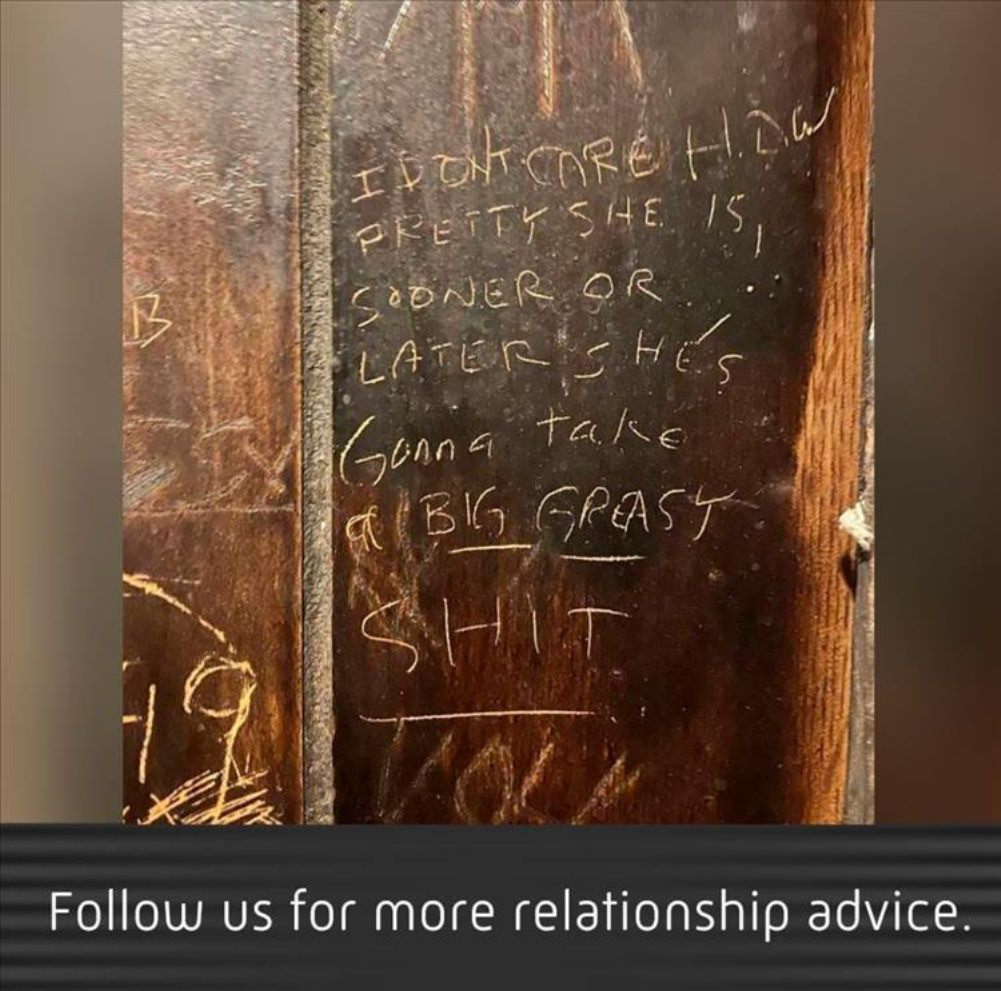 B
I DONT CARE H.O.W
PRETTY SHE IS,
SOONER OR
LATER SHE'S
Gonna take
a BIG GREASY
SHIT
19
Follow us for more relationship advice.